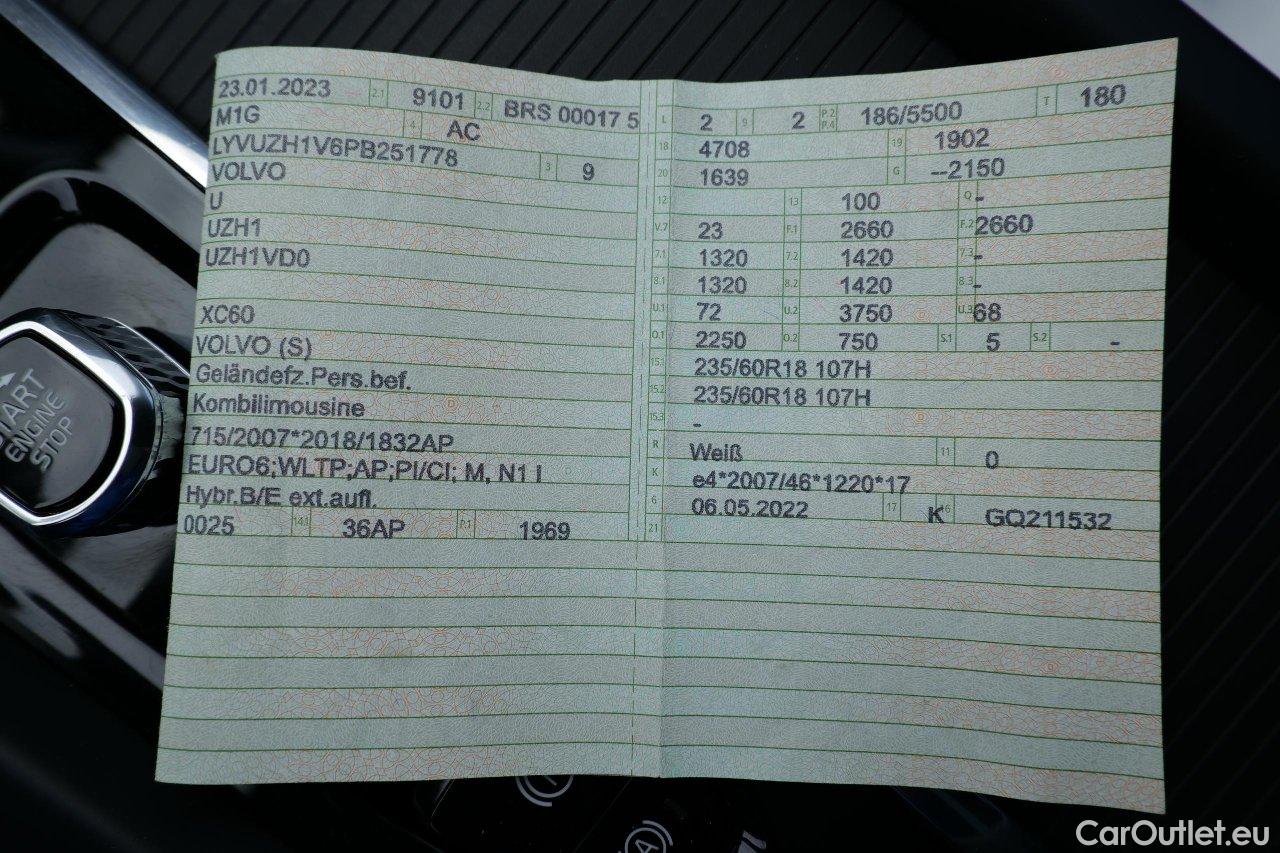 23.01.2023 2.1 9101 2.2 BRS 00017 5
M1G 4 AC
LYVUZH1V6PB251778 3 9
VOLVO
U
UZH1
UZH1VD0
XC60
VOLVO (S)
Geländefz.Pers.bef.
Kombilimousine
715/2007*2018/1832AP
EURO6;WLTP;AP;PI/CI; M, N1 I
Hybr.B/E ext.aufl.
0025 14.1 36AP P.1 1969
L 2 9 2 P.2 P.4 186/5500 T 180
18 4708 19 1902
20 1639 G --2150
12 13 100 Q -
V.7 23 F.1 2660 F.2 2660
7.1 1320 7.2 1420 7.3 -
8.1 1320 8.2 1420 8.3 -
U.1 72 U.2 3750 U.3 68
O.1 2250 O.2 750 S.1 5 S.2 -
15.1 235/60R18 107H
15.2 235/60R18 107H
15.3 -
R Weiß 11 0
K e4*2007/46*1220*17
6 06.05.2022 17 K 16 GQ211532
21
START
ENGINE
STOP
A
CarOutlet.eu